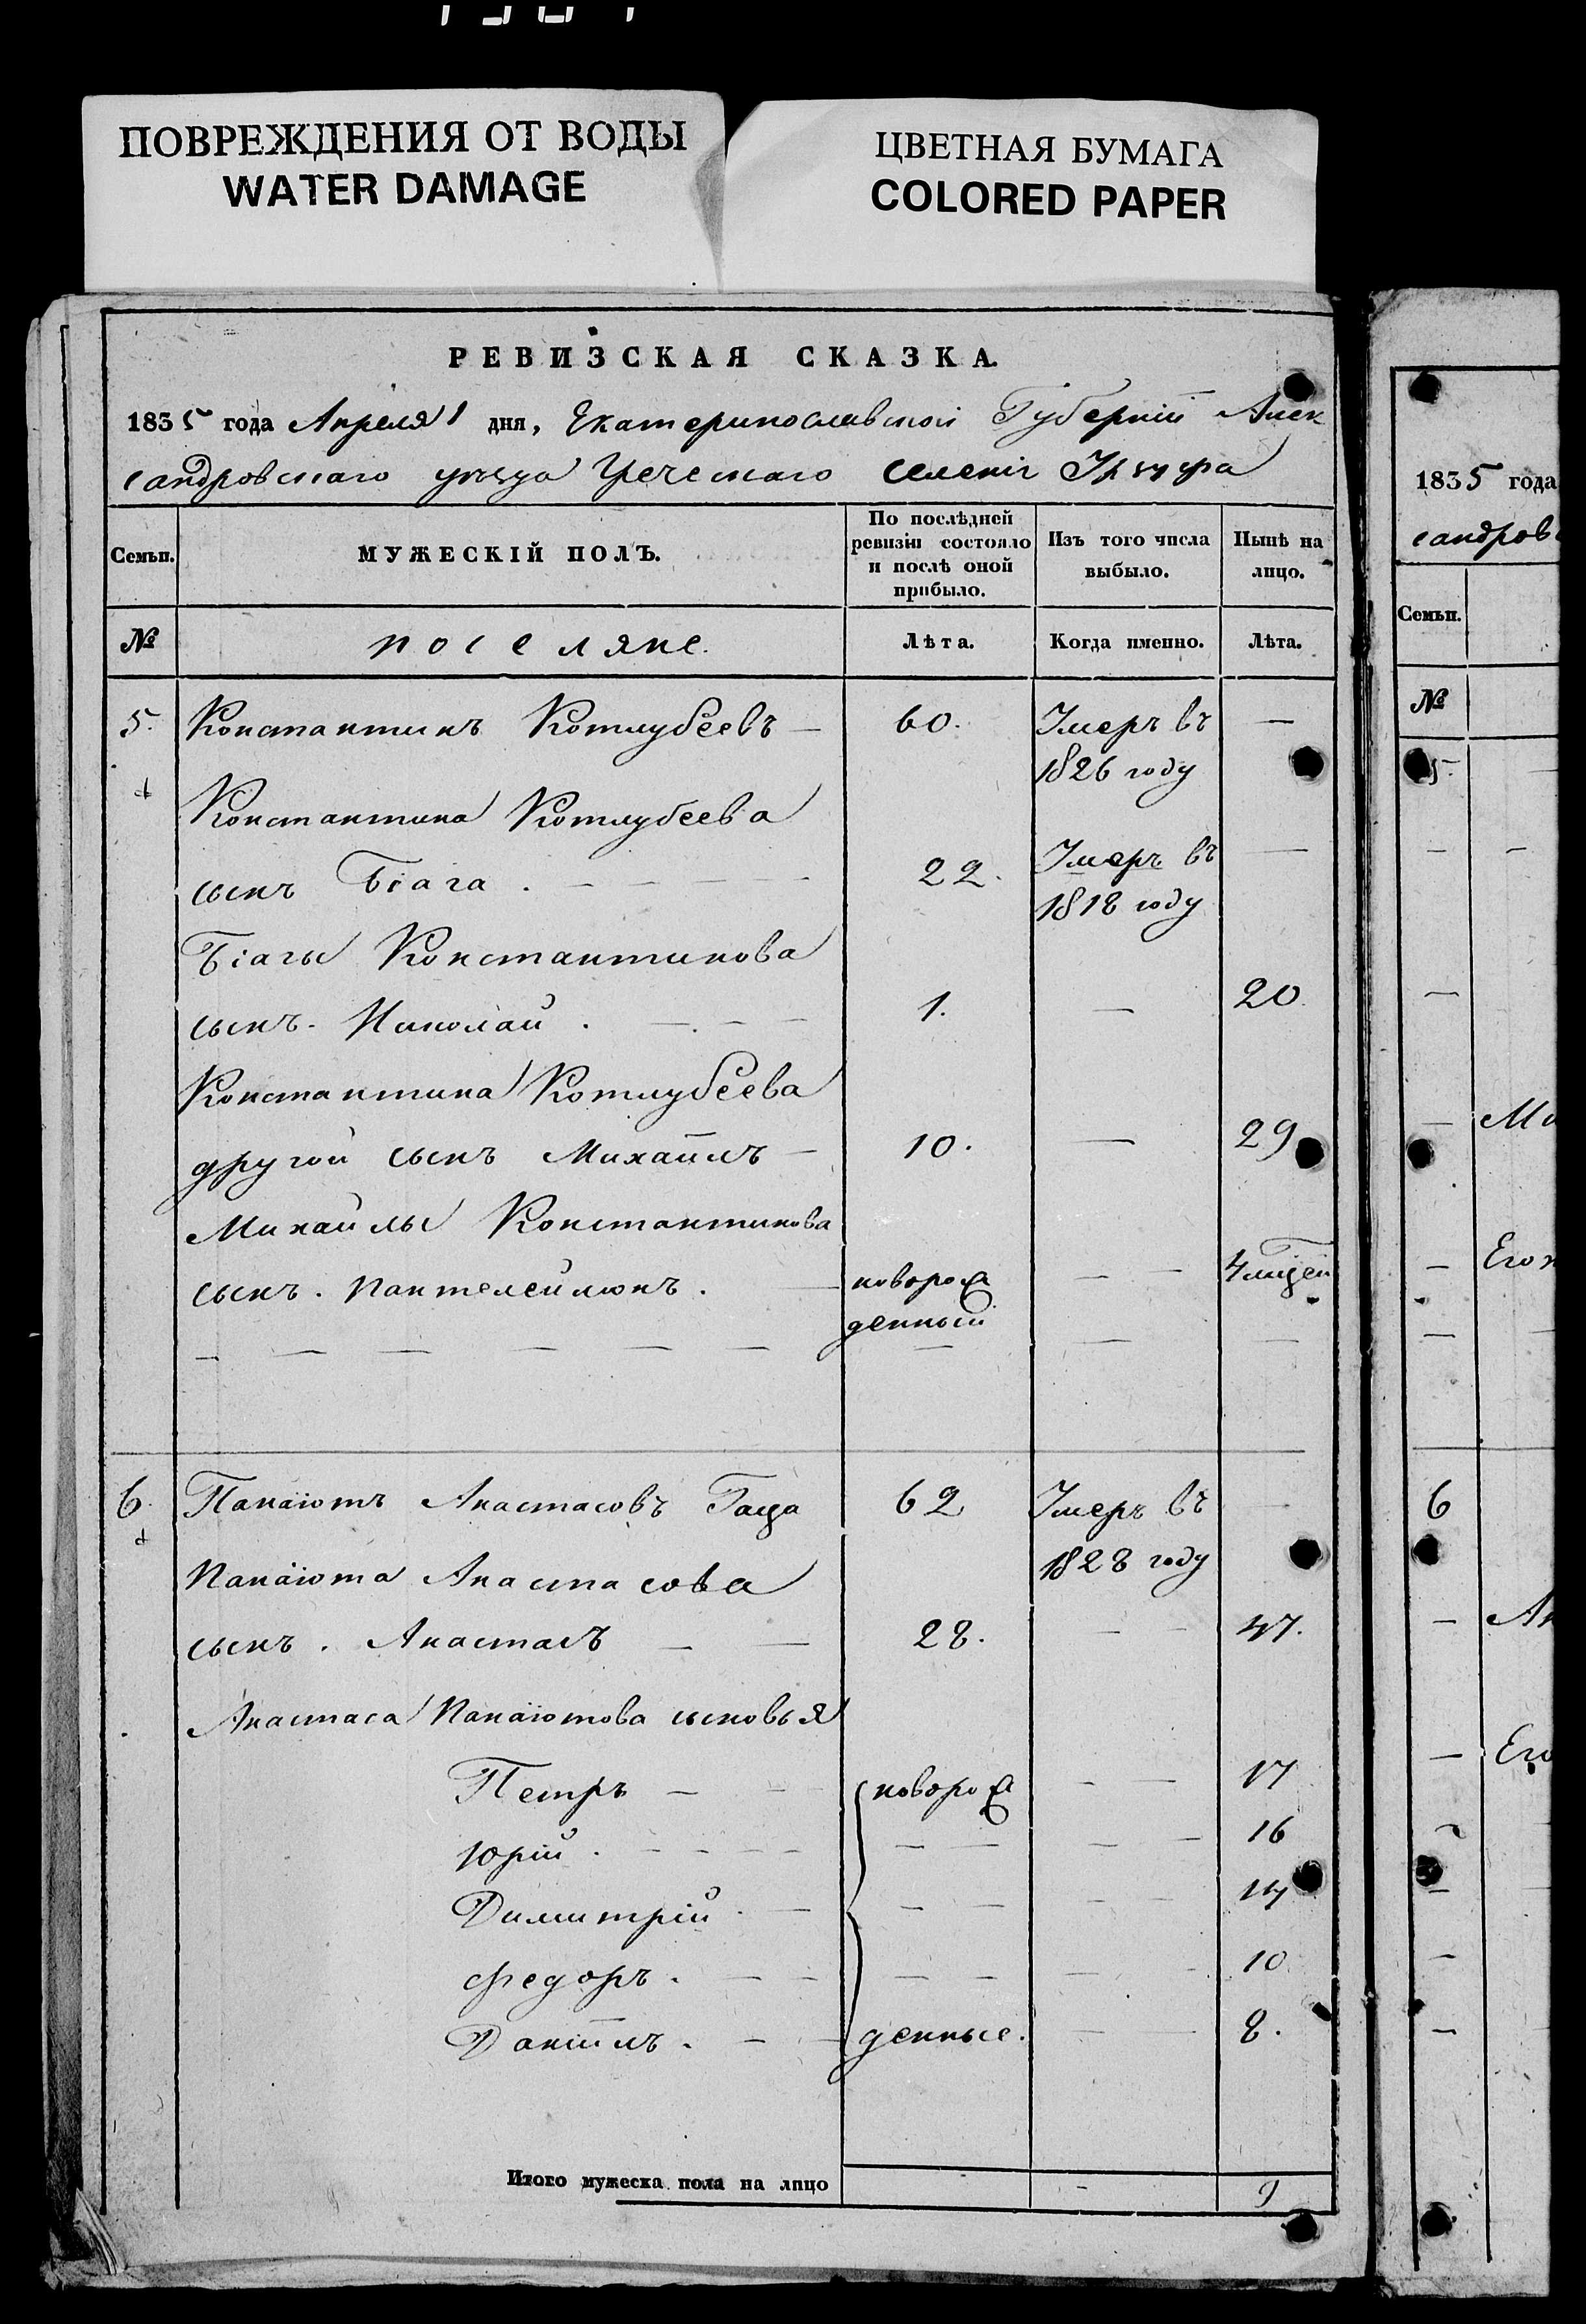 ПОВРЕЖДЕНИЯ ОТ ВОДЫ
WATER DAMAGE
ЦВЕТНАЯ БУМАГА
COLORED PAPER
РЕВИЗСКАЯ СКАЗКА.
1835 года Апреля 1 дня, Екатеринославской Губернiи Алек
сандровскаго уѣзда Греческаго селенiя
Семьи.
МУЖЕСКIЙ ПОЛЪ.
По послѣдней ревизiи состояло и послѣ оной прибыло.
Изъ того числа выбыло.
Нынѣ на лицо.
№
поселяне.
Лѣта.
Когда именно.
Лѣта.
5. Константинъ Котлубеевъ — 60. Умеръ въ —
1826 году
Константина Котлубеева
сынъ Бiага . — 22. Умеръ въ —
1818 году
Бiагы Константинова
сынъ. Николай . — 1. — 20.
Константина Котлубеева
другой сынъ Михаилъ — 10. — 29
Михайлы Константинова
сынъ. Пантелеймонъ. — новорож — 4
денный
6. Панаiотъ Анастасовъ Гаца 62 Умеръ въ —
1828 году
Панаiота Анастасова
сынъ. Анастасъ — 28. — 47.
Анастаса Панаiотова сыновья
Петръ — новорож — 17
Юрiй. — 16
Димитрiй. — 14
Федоръ. — 10
Данiилъ. — денные. — 8.
Итого мужеска пола на лицо — 9
1835 года
сандров
Семьи.
№
5.
Ми
Его
6
Ан
Его